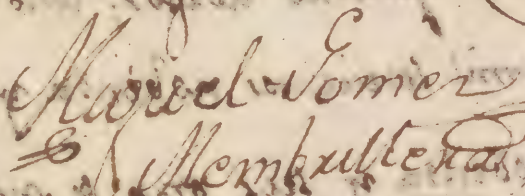 Miguel Gomez
Membrillera